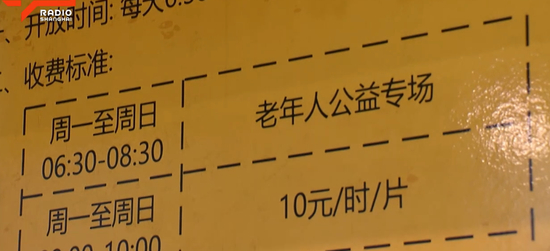 RADIO
SHANGHAI
一、开放时间: 每天
二、收费标准:
周一至周日
06:30-08:30
老年人公益专场
周一至周日
10元/时/片